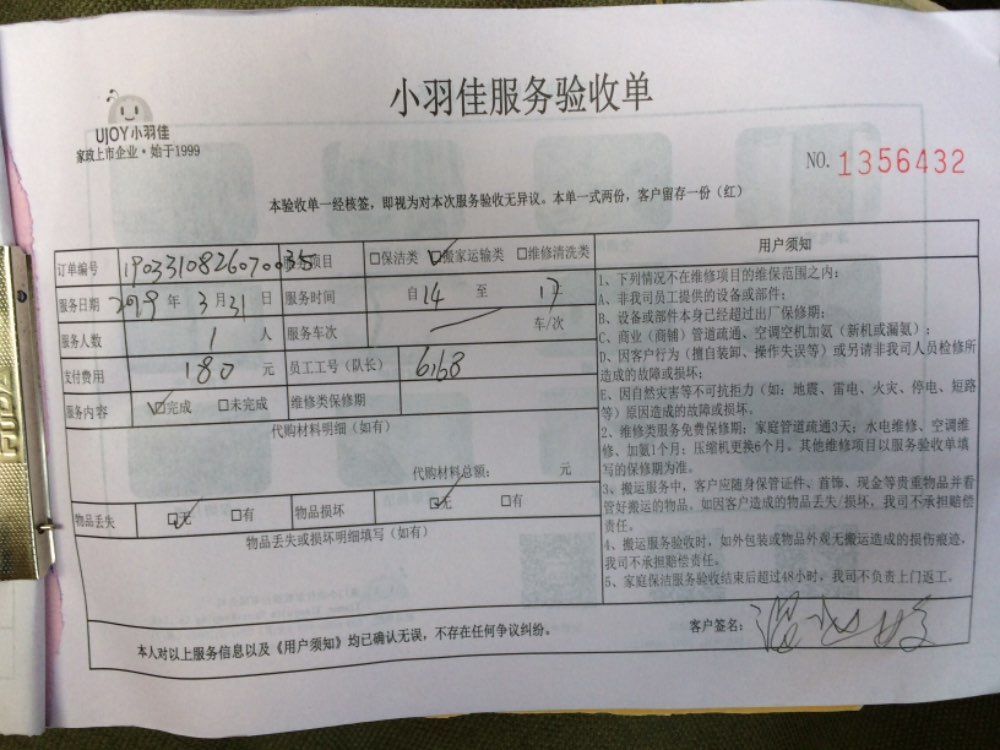 小羽佳服务验收单
UJOY小羽佳
家政上市企业·始于1999
NO. 1356432
本验收单一经核签，即视为对本次服务验收无异议。本单一式两份，客户留存一份（红）
订单编号 1903310826070035 服务项目 □保洁类 ☑搬家运输类 □维修清洗类
服务日期 2019 年 3 月 31 日 服务时间 自 14 至 17
服务人数 1 人 服务车次 车/次
支付费用 180 元 员工工号（队长） 6168
服务内容 ☑完成 □未完成 维修类保修期
代购材料明细（如有）
代购材料总额： 元
物品丢失 ☑无 □有 物品损坏 ☑无 □有
物品丢失或损坏明细填写（如有）
用户须知
1、下列情况不在维修项目的维保范围之内：
A、非我司员工提供的设备或部件；
B、设备或部件本身已经超过出厂保修期；
C、商业（商铺）管道疏通、空调空机加氨（新机或漏氨）；
D、因客户行为（擅自装卸、操作失误等）或另请非我司人员检修所
造成的故障或损坏；
E、因自然灾害等不可抗拒力（如：地震、雷电、火灾、停电、短路
等）原因造成的故障或损坏。
2、维修类服务免费保修期：家庭管道疏通3天；水电维修、空调维
修、加氨1个月；压缩机更换6个月。其他维修项目以服务验收单填
写的保修期为准。
3、搬运服务中，客户应随身保管证件、首饰、现金等贵重物品并看
管好搬运的物品，如因客户造成的物品丢失/损坏，我司不承担赔偿
责任。
4、搬运服务验收时，如外包装或物品外观无搬运造成的损伤痕迹，
我司不承担赔偿责任。
5、家庭保洁服务验收结束后超过48小时，我司不负责上门返工。
本人对以上服务信息以及《用户须知》均已确认无误，不存在任何争议纠纷。
客户签名：